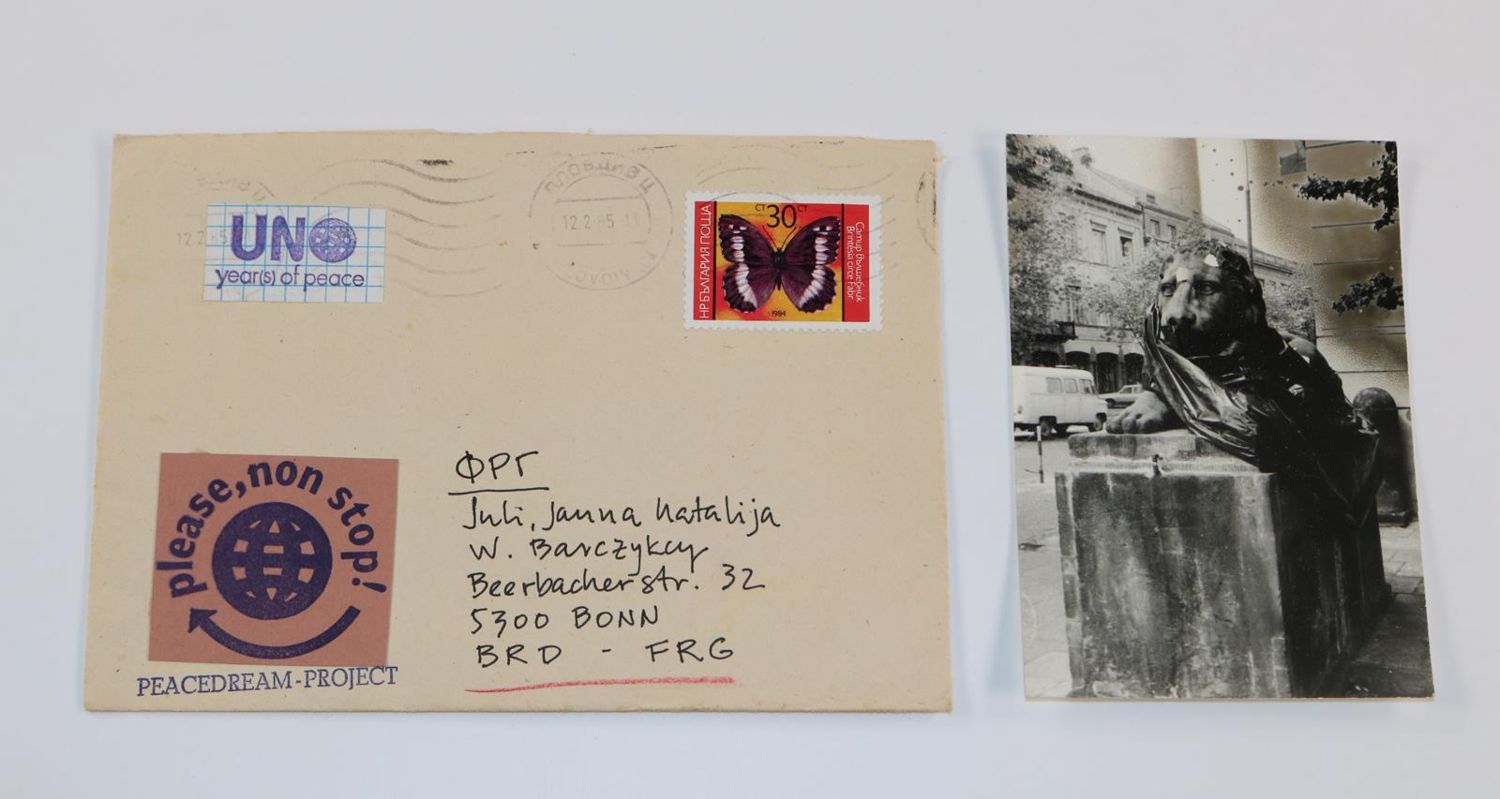 ПЛОВДИВ Ц
12.2.85
UNO
year(s) of peace
НР БЪЛГАРИЯ ПОЩА
СТ 30 СТ
Сатир вълшебник
Brintesia circe Fabr.
1984
please, non stop!
PEACEDREAM-PROJECT
ФРГ
Juli, Janna Natalija
W. Barczykcy
Beerbacherstr. 32
5300 BONN
BRD - FRG